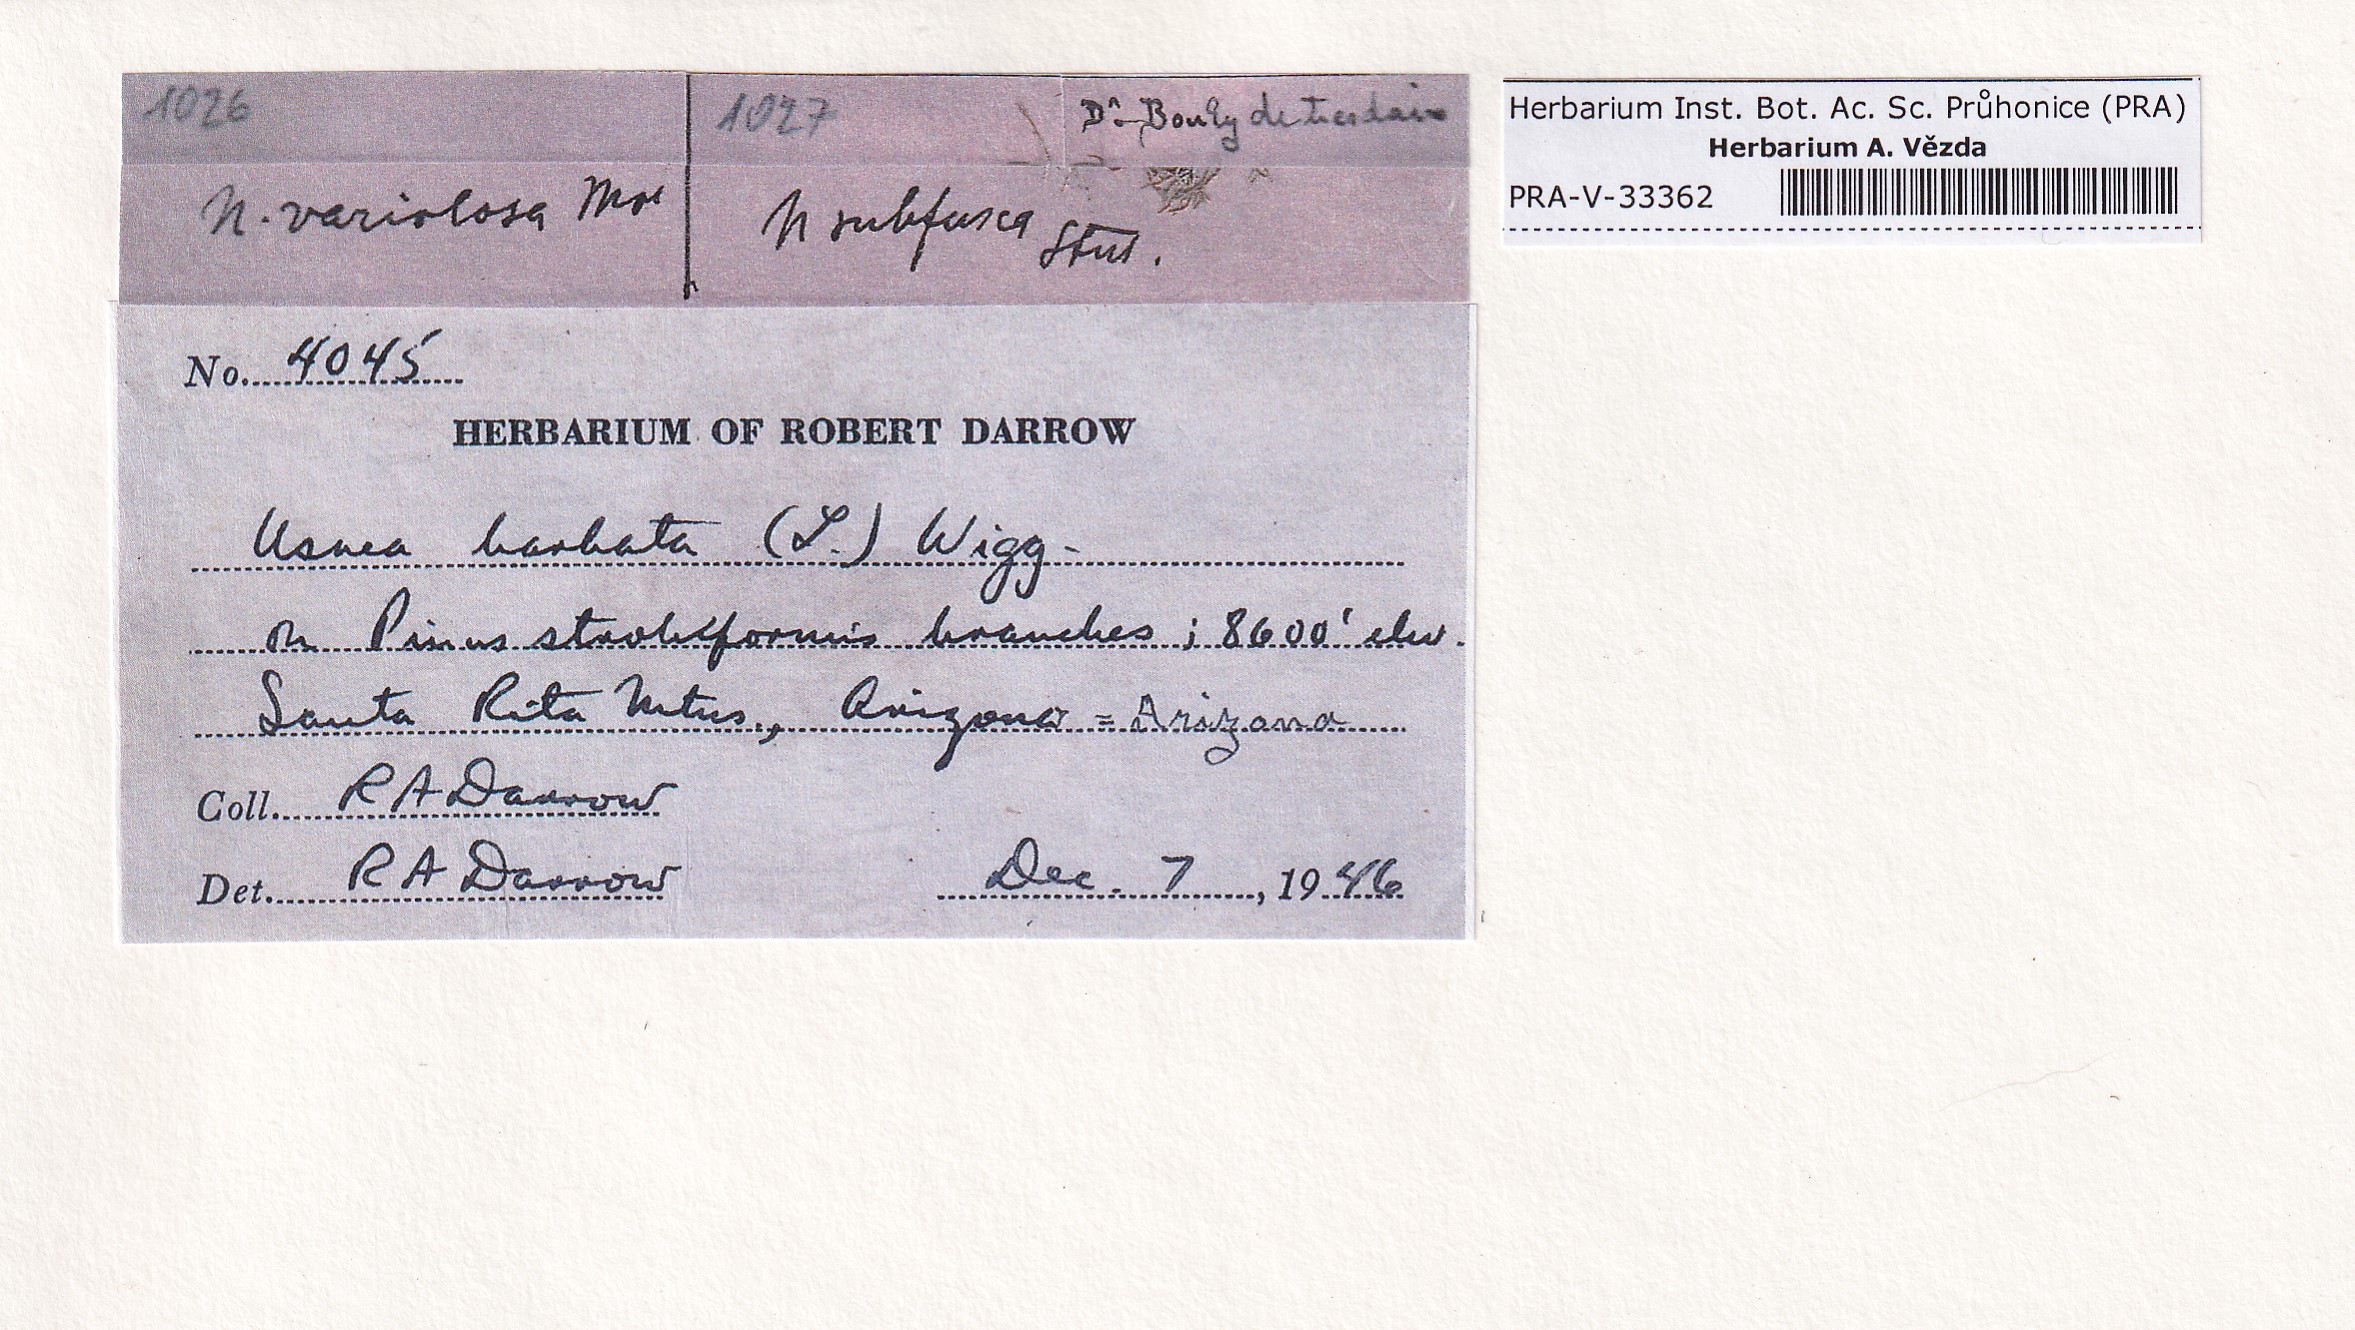 1026
1027
Dr. Bouly de Lesdain
N. variolosa Mot
N subfusca
Stirt.
Herbarium Inst. Bot. Ac. Sc. Průhonice (PRA)
Herbarium A. Vězda
PRA-V-33362
No. 4045
HERBARIUM OF ROBERT DARROW
Usnea barbata (L.) Wigg.
on Pinus strobiformis branches; 8600' elev.
Santa Rita Mtns., Arizona = Arizona
Coll. R A Darrow
Det. R A Darrow
Dec. 7, 1946